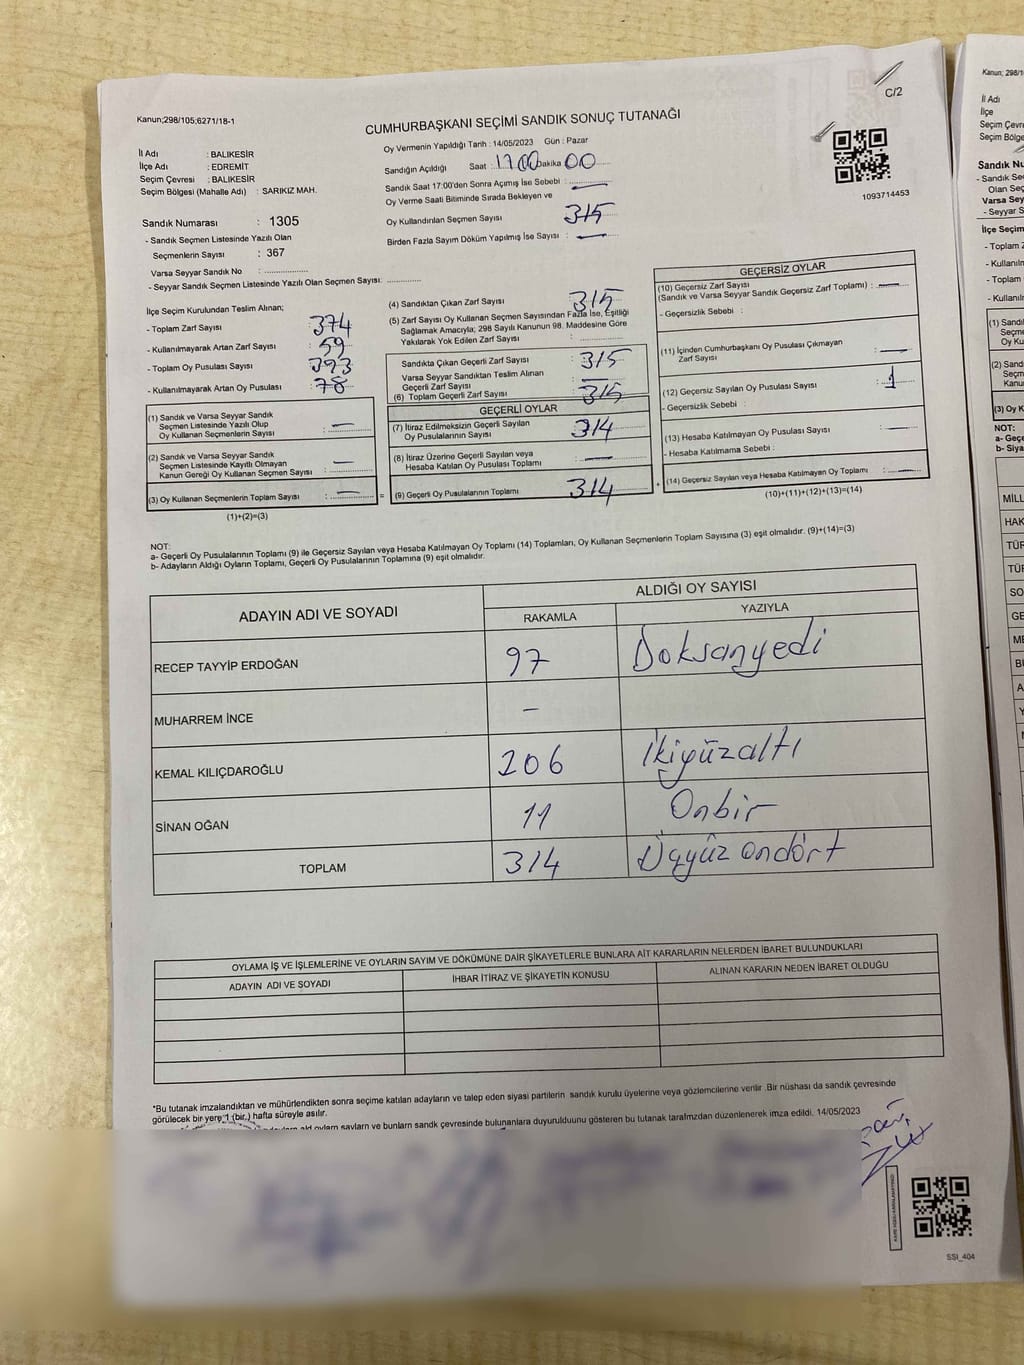 Kanun;298/105;6271/18-1
C/2
CUMHURBAŞKANI SEÇİMİ SANDIK SONUÇ TUTANAĞI
İl Adı : BALIKESİR
İlçe Adı : EDREMİT
Seçim Çevresi : BALIKESİR
Seçim Bölgesi (Mahalle Adı) : SARIKIZ MAH.
Sandık Numarası : 1305
- Sandık Seçmen Listesinde Yazılı Olan
Seçmenlerin Sayısı : 367
Varsa Seyyar Sandık No :
- Seyyar Sandık Seçmen Listesinde Yazılı Olan Seçmen Sayısı:
Oy Vermenin Yapıldığı Tarih : 14/05/2023 Gün : Pazar
Sandığın Açıldığı Saat : 17 00 Dakika 00
Sandık Saat 17:00'den Sonra Açımış İse Sebebi : —
Oy Verme Saati Bitiminde Sırada Bekleyen ve
Oy Kullandırılan Seçmen Sayısı 315
Birden Fazla Sayım Döküm Yapılmış İse Sayısı : —
1093714453
İlçe Seçim Kurulundan Teslim Alınan;
- Toplam Zarf Sayısı : 374
- Kullanılmayarak Artan Zarf Sayısı : 59
- Toplam Oy Pusulası Sayısı : 393
- Kullanılmayarak Artan Oy Pusulası : 78
(1) Sandık ve Varsa Seyyar Sandık
Seçmen Listesinde Yazılı Olup
Oy Kullanan Seçmenlerin Sayısı : —
(2) Sandık ve Varsa Seyyar Sandık
Seçmen Listesinde Kayıtlı Olmayan
Kanun Gereği Oy Kullanan Seçmen Sayısı : —
(3) Oy Kullanan Seçmenlerin Toplam Sayısı : —
(1)+(2)=(3)
(4) Sandıktan Çıkan Zarf Sayısı 315
(5) Zarf Sayısı Oy Kullanan Seçmen Sayısından Fazla İse, Eşitliği
Sağlamak Amacıyla; 298 Sayılı Kanunun 98. Maddesine Göre
Yakılarak Yok Edilen Zarf Sayısı :
Sandıkta Çıkan Geçerli Zarf Sayısı : 315
Varsa Seyyar Sandıktan Teslim Alınan
Geçerli Zarf Sayısı : —
(6) Toplam Geçerli Zarf Sayısı : 315
GEÇERLİ OYLAR
(7) İtiraz Edilmeksizin Geçerli Sayılan
Oy Pusulalarının Sayısı : 314
(8) İtiraz Üzerine Geçerli Sayılan veya
Hesaba Katılan Oy Pusulası Toplamı : —
(9) Geçerli Oy Pusulalarının Toplamı : 314
GEÇERSİZ OYLAR
(10) Geçersiz Zarf Sayısı
(Sandık ve Varsa Seyyar Sandık Geçersiz Zarf Toplamı) : —
- Geçersizlik Sebebi :
(11) İçinden Cumhurbaşkanı Oy Pusulası Çıkmayan
Zarf Sayısı : —
(12) Geçersiz Sayılan Oy Pusulası Sayısı : 1
- Geçersizlik Sebebi :
(13) Hesaba Katılmayan Oy Pusulası Sayısı : —
- Hesaba Katılmama Sebebi :
(14) Geçersiz Sayılan veya Hesaba Katılmayan Oy Toplamı : —
(10)+(11)+(12)+(13)=(14)
NOT:
a- Geçerli Oy Pusulalarının Toplamı (9) ile Geçersiz Sayılan veya Hesaba Katılmayan Oy Toplamı (14) Toplamları, Oy Kullanan Seçmenlerin Toplam Sayısına (3) eşit olmalıdır. (9)+(14)=(3)
b- Adayların Aldığı Oyların Toplamı, Geçerli Oy Pusulalarının Toplamına (9) eşit olmalıdır.
ADAYIN ADI VE SOYADI
ALDIĞI OY SAYISI
RAKAMLA YAZIYLA
RECEP TAYYİP ERDOĞAN 97 Doksanyedi
MUHARREM İNCE –
KEMAL KILIÇDAROĞLU 206 İkiyüzaltı
SİNAN OĞAN 11 Onbir
TOPLAM 314 Üçyüz ondört
OYLAMA İŞ VE İŞLEMLERİNE VE OYLARIN SAYIM VE DÖKÜMÜNE DAİR ŞİKAYETLERLE BUNLARA AİT KARARLARIN NELERDEN İBARET BULUNDUKLARI
ADAYIN ADI VE SOYADI İHBAR İTİRAZ VE ŞİKAYETİN KONUSU ALINAN KARARIN NEDEN İBARET OLDUĞU
*Bu tutanak imzalandıktan ve mühürlendikten sonra seçime katılan adayların ve talep eden siyasi partilerin sandık kurulu üyelerine veya gözlemcilerine verilir .Bir nüshası da sandık çevresinde
görülecek bir yere 1 (bir.) hafta süreyle asılır.
sandık çevresinde bulunanlara duyurulduunu gösteren bu tutanak tarafımzdan düzenlenerek imza edildi. 14/05/2023
SSI_404
Kanun; 298/1
İl Adı
İlçe
Seçim Çevre
Seçim Bölge
Sandık Nu